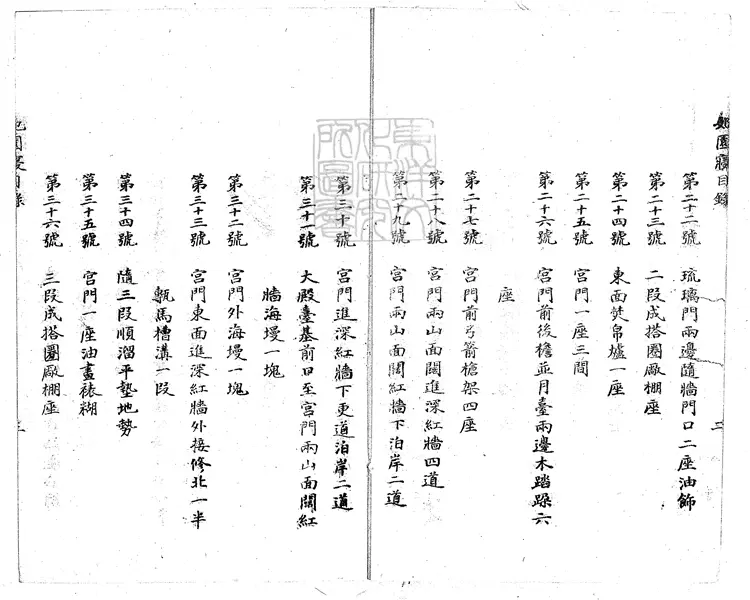 妃園寢目錄
第二十二號 琉璃門兩邊隨牆門口二座油飾
第二十三號 二段成搭圈廠棚座
第二十四號 東面焚帛爐一座
第二十五號 宮門一座三間
第二十六號 宮門前後檐並月臺兩邊木踏跺六
座
第二十七號 宮門前弓箭槍架四座
第二十八號 宮門兩山面闊進深紅牆四道
第二十九號 宮門兩山面闊紅牆下泊岸二道
三
第三十號 宮門進深紅牆下更道泊岸二道
第三十一號 大殿臺基前口至宮門兩山面闊紅
牆海墁一塊
第三十二號 宮門外海墁一塊
第三十三號 宮門東面進深紅牆外接修北一半
甎馬槽溝一段
第三十四號 隨三段順溜平墊地勢
第三十五號 宮門一座油畫裱糊
第三十六號 三段成搭圈廠棚座
三